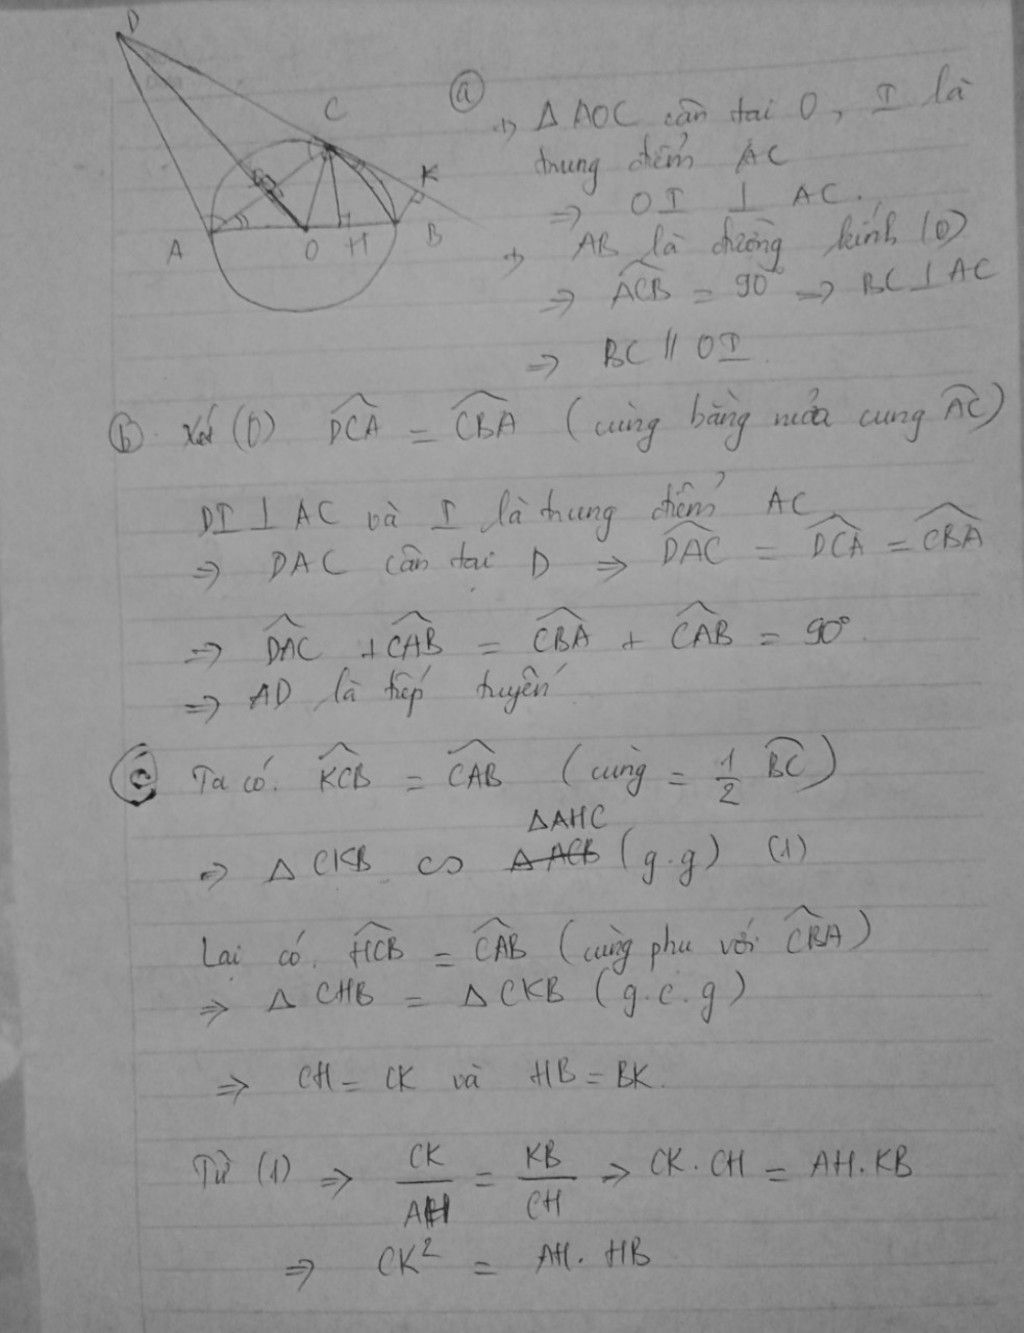 D
C
K
A
O
H
B
ⓐ
+> Δ AOC cân tại O, I là
trung điểm AC
=> OI ⊥ AC.
+> AB là đường kính (O)
=> \widehat{ACB} = 90° => BC ⊥ AC
=> BC // OI.
ⓑ. Xét (O) \widehat{DCA} = \widehat{CBA} (cùng bằng nửa cung \widehat{AC})
DI ⊥ AC và I là trung điểm AC
=> DAC cân tại D => \widehat{DAC} = \widehat{DCA} = \widehat{CBA}
=> \widehat{DAC} + \widehat{CAB} = \widehat{CBA} + \widehat{CAB} = 90°.
=> AD là tiếp tuyến
ⓒ Ta có. \widehat{KCB} = \widehat{CAB} (cùng = \frac{1}{2} \widehat{BC})
ΔAHC
=> Δ CKB ∽ Δ ACB (g.g) (1)
Lại có. \widehat{HCB} = \widehat{CAB} (cùng phụ với \widehat{CBA})
=> Δ CHB = Δ CKB (g.c.g)
=> CH = CK và HB = BK.
Từ (1) => \frac{CK}{AH} = \frac{KB}{CH} => CK.CH = AH.KB
=> CK² = AH.HB